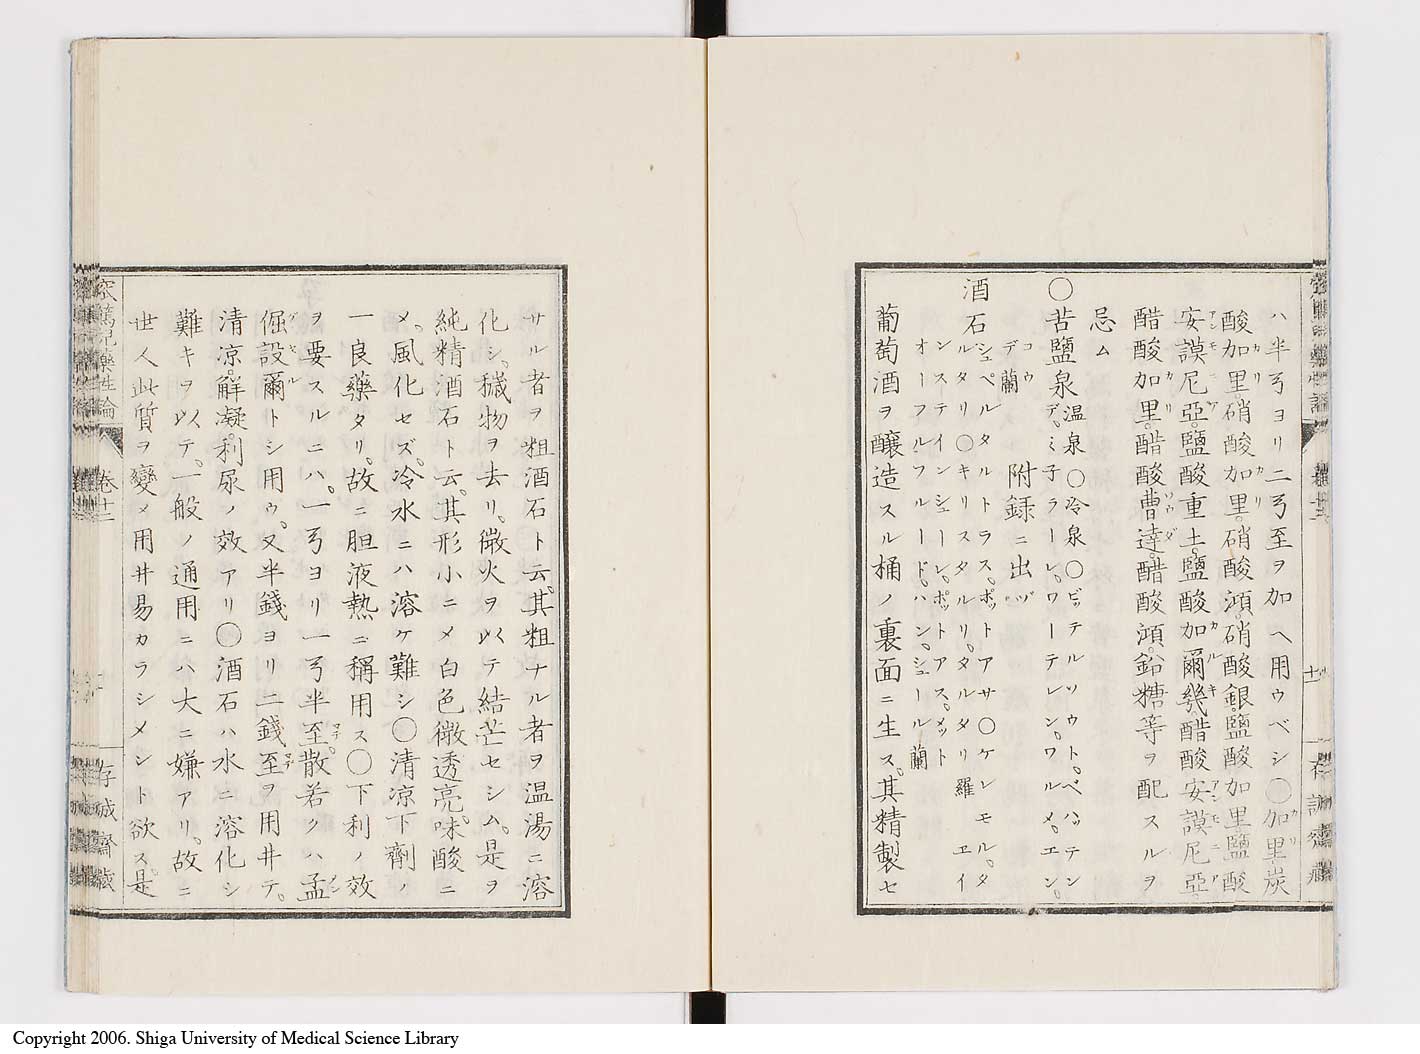 ハ半弓ヨリ二弓至ヲ加ヘ用ウベシ○加里炭
酸加里。硝酸加里。硝酸澒。硝酸銀。鹽酸加里鹽酸
安謨尼亞。鹽酸重土。鹽酸加爾幾。醋酸安謨尼亞。
醋酸加里。醋酸曹達。醋酸澒。鉛糖等ヲ配スルヲ
忌ム
○苦鹽泉 温泉○冷泉○ビッテルソウト。ベハッテン
デ。ミ子ラーレ。ワーテレン。ワルメ。エン。
コウデ蘭 附録ニ出ヅ
酒石 シュペルタルトラス。ポットアサ○ケレモル。タ
ルタリ○キリスタルリ。タルタリ羅 ヱイ
ンステインシューレ。ポットアス。メット
オーフルフルード。ハン。シュール蘭
葡萄酒ヲ釀造スル桶ノ裏面ニ生ス。其精製セ
サル者ヲ粗酒石ト云。其粗ナル者ヲ温湯ニ溶
化シ。穢物ヲ去リ。微火ヲ以テ結芒セシム。是ヲ
純精酒石ト云。其形小ニメ白色微透亮。味酸ニ
メ。風化セズ。冷水ニハ溶ケ難シ○清凉下劑ノ
一良藥タリ。故ニ胆液熱ニ稱用ス○下利ノ效
ヲ要スルニハ。一弓ヨリ一弓半至。散若クハ孟
倔設爾トシ用ウ。又半錢ヨリ二錢至ヲ用井テ。
清凉。解凝。利尿ノ效アリ○酒石ハ水ニ溶化シ
難キヲ以テ。一般ノ通用ニハ大ニ嫌アリ。故ニ
世人此質ヲ變メ用井易カラシメント欲ス。是
窊篤兒藥性論 卷十二 存誠齋藏
Copyright 2006. Shiga University of Medical Science Library